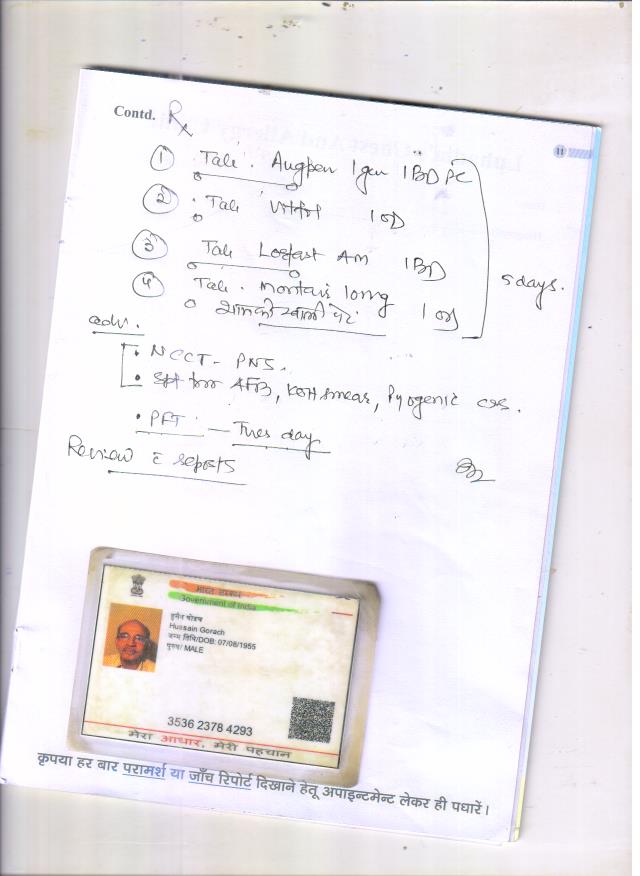 Contd. Rx
11
① Tab. Augpen 1gm 1BD PC
② Tab 1 OD
③ Tab AM 1BD
④ Tab. 10mg 1 OD
शाम को खाली पेट
5 days.
adv.
• NCCT - PNS.
• for AFB, KOH smear, Pyogenic c/s.
• PFT - Tues day
Review c reports
भारत सरकार
Government of India
Hussain Gorach
जन्म तिथि/DOB: 07/08/1955
पुरुष/ MALE
3536 2378 4293
मेरा आधार, मेरी पहचान
कृपया हर बार परामर्श या जाँच रिपोर्ट दिखाने हेतू अपाइन्टमेन्ट लेकर ही पधारें।